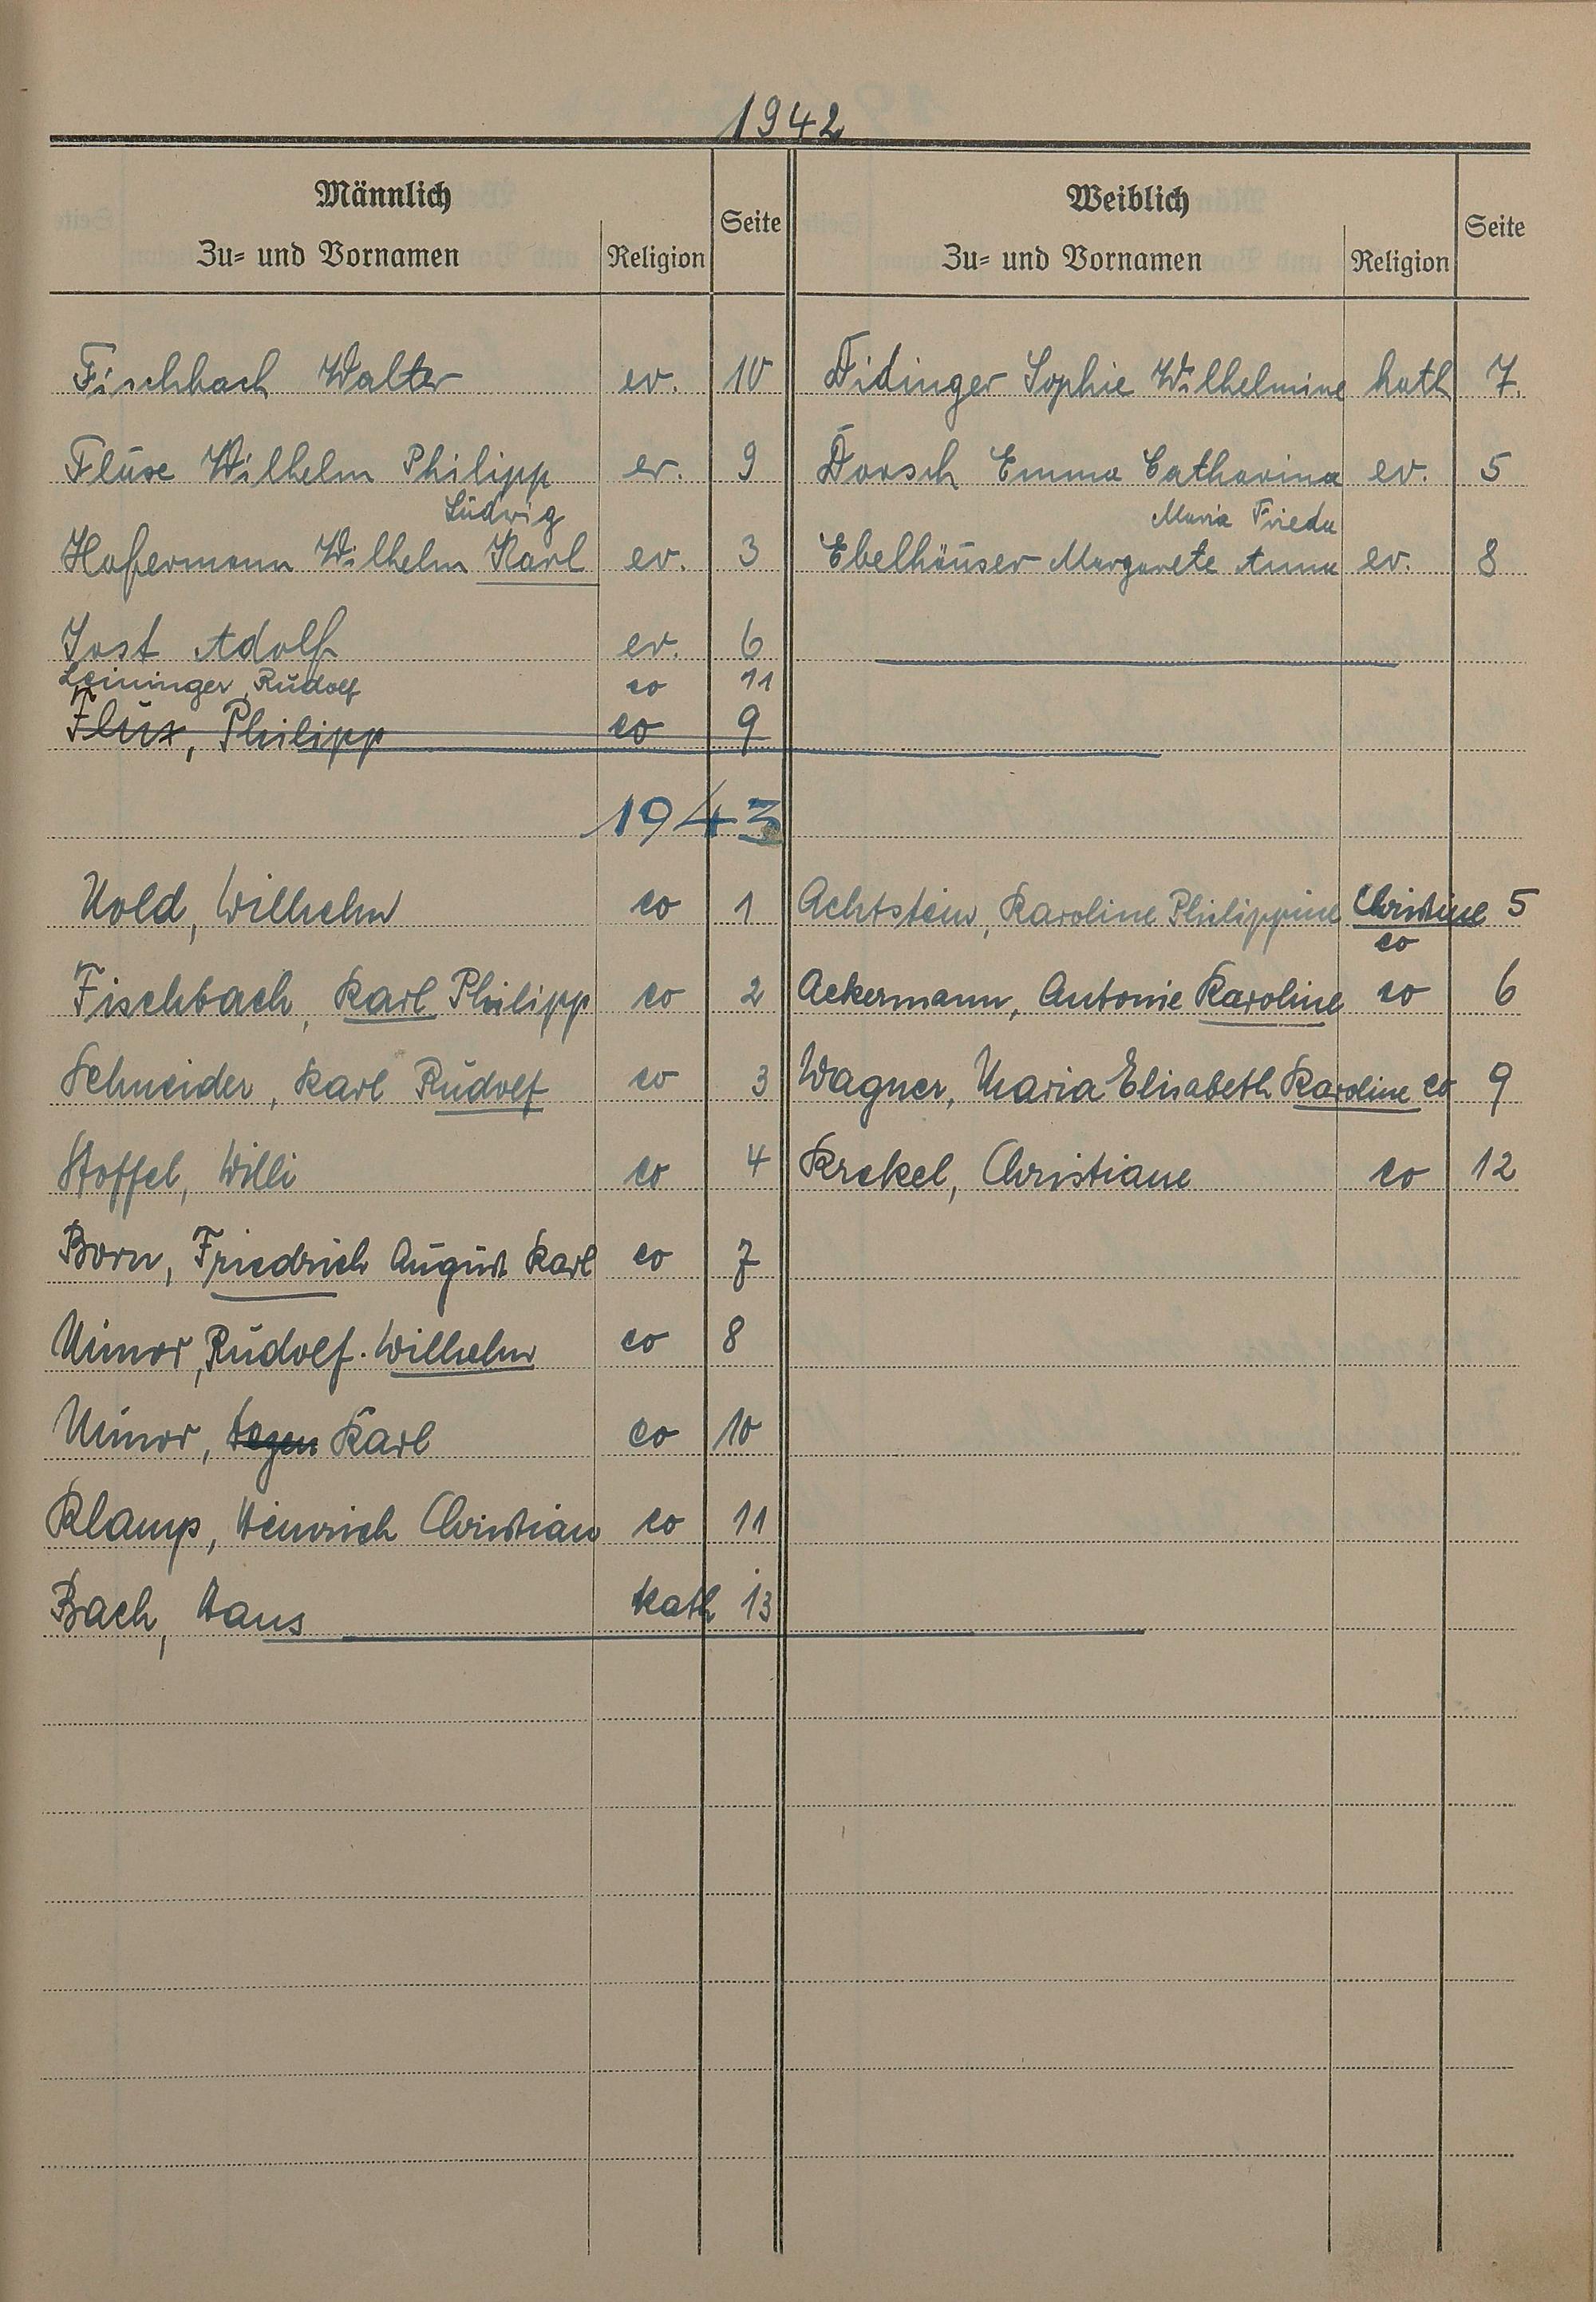 1942
Männlich Weiblich
Zu= und Vornamen Religion Seite Zu= und Vornamen Religion Seite
Fischbach Walter ev. 10 Didinger Sophie Wilhelmine kath 7.
Fluse Wilhelm Philipp ev. 9 Dorsch Emma Catharina ev. 5
Ludwig Maria Frieda
Hofermann Wilhelm Karl ev. 3 Ebelhäuser Margarete Anna ev. 8
Jost Adolf ev. 6
Leininger, Rudolf ev 11
Flux, Philipp ev 9
1943
Nold, Wilhelm ev 1 Achtstein, Karoline Philippine Christine 5
ev
Fischbach, Karl Philipp ev 2 Ackermann, Antonie Karoline ev 6
Schneider, Karl Rudolf ev 3 Wagner, Maria Elisabeth Karoline ev 9
Stoffel, Willi ev 4 Krekel, Christiane ev 12
Born, Friedrich August Karl ev 7
Minor, Rudolf Wilhelm ev 8
Minor, Karl ev 10
Klamp, Heinrich Christian ev 11
Bach, Hans kath 13